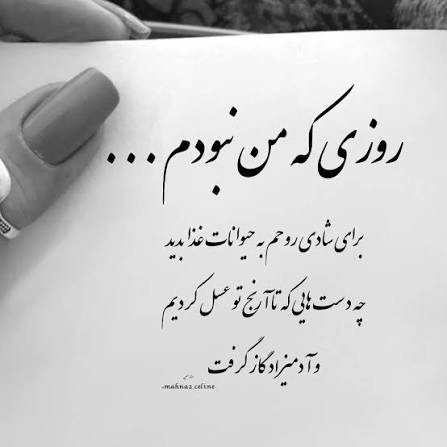 روزی که من نبودم...
برای شادی روحم به حیوانات غذا بدید
چه دست هایی که تا آرنج تو عسل کردیم
و آدمیزاد گاز گرفت
mahnaz_celine